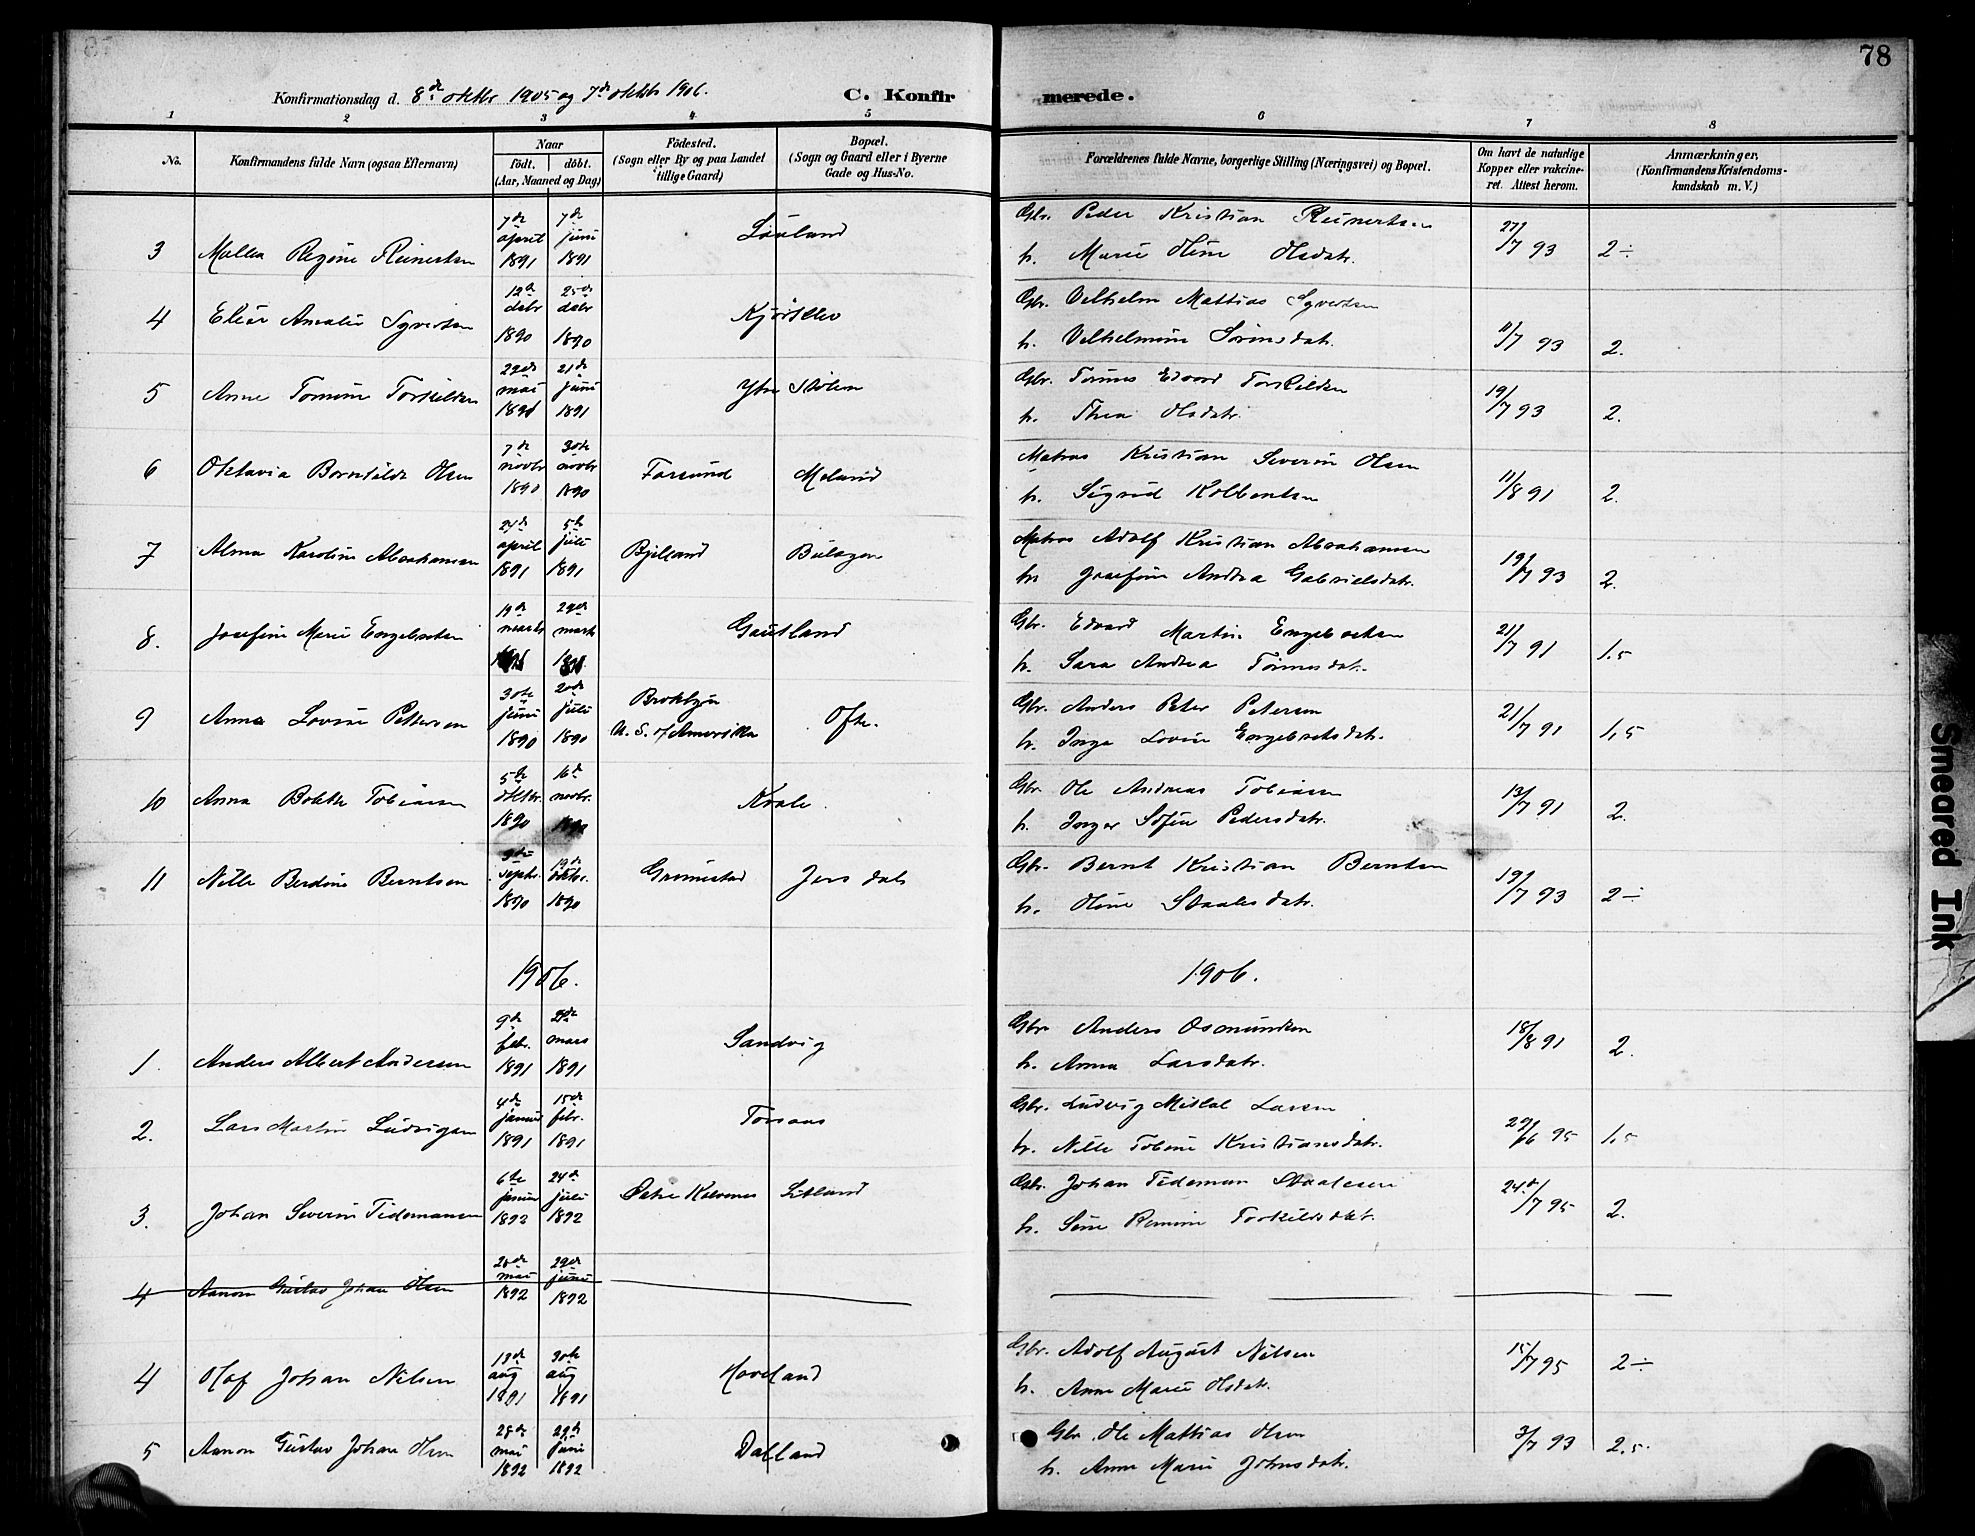 78
Konfirmationsdag d. 8de oktbr 1905 og 7de oktbr 1906.
C. Konfir merede.
1 2 3 4 5 6 7 8
No.
Konfirmandens fulde Navn (ogsaa Efternavn)
Naar
født. døbt.
(Aar, Maaned og Dag)
Fødested.
(Sogn eller By og paa Landet
tillige Gaard)
Bopæl.
(Sogn og Gaard eller i Byerne
Gade og Hus-No.
Forældrenes fulde Navne, borgerlige Stilling (Næringsvei) og Bopæl.
Om havt de naturlige
Kopper eller vakcine-
ret. Attest herom.
Anmærkninger.
(Konfirmandens Kristendoms-
kundskab m. V.)
3 Mallea Regine Reinertsen 7de april 1891 7de juni 1891
Gbr. Peder Kristian Reinertsen
h. Marie Oline Olsdatr. 27/7 93 2÷
4 Elise Amalie Syvertsen 12te debr 1890 25de debr 1890
Gbr. Vilhelm Mattias Syvertsen
h. Vilhelmine Sørensdatr. 11/7 93 2.
5 Anne Tomine Torkildsen 22de mai 1891 21de juni 1891 Ytre Stølen
Gbr. Tønnes Edvard Torkildsen
h. Thea Olsdatr. 19/7 93 2.
6 Oktavia Borntilde Olsen 7de novbr 1890 30te novbr 1890 Farsund Meland
Matros Kristian Severin Olsen
h. Sigrid Kolbentsen 11/8 91 2.
7 Alma Karoline Abrahamsen 24de april 1891 5te juli 1891 Bjelland
Matros Adolf Kristian Abrahamsen
h. Josefine Andrea Gabrielsdatr. 19/7 93 2.
8. Josefine Marie Engebretsen 19de marts 29de marts Gautland
Gbr. Edvard Martin Engebretsen
h. Sara Andrea Tønnesdatr. 21/7 91 1.5
9 Anna Lovise Pettersen 30te juni 1890 20de juli 1890 Broklyn U. S. of Amerikka Ofte.
Gbr. Anders Peter Petersen
h. Inga Lovise Engebretsdatr. 21/7 91 1,5
10 Anna Bolette Tobiasen 5te oktbr. 1890 16de novbr. 1890 Kvale.
Gbr. Ole Andreas Tobiasen
h. Inger Sofie Pedersdatr. 13/7 91 2.
11 Nille Berdine Berntsen septr. 1890 19de oktbr. 1890 Grimestad Jersdal
Gbr. Bernt Kristian Berntsen
h. Oline Staalesdatr. 19/7 93 2÷
1906. 1906.
1. Anders Albert Andersen 9de febr. 1891 mars 1891 Sandvig
Gbr Anders Osmundsen
h. Anna Larsdatr. 18/8 91 2.
2. Lars Martin Ludvigsen 4de januar 1891 15de febr. 1891
Gbr. Ludvig Mikkal Larsen
h. Nille Tobine Kristiansdatr. 29/6 95 1,5
3. Johan Severin Tidemansen 6te 1892 24de juli 1892
Gbr. Johan Tideman Staalesen
h. Sine Remine Torkildsdatr. 24/7 95 2.
4 Aanon Gustav Johan Olsen 28de mai 1892 29de juni 1892
4 Olaf Johan Nilsen 13de aug 1891 30te aug 1891 Hoveland
Gbr. Adolf August Nilsen
h. Anne Marie Olsdatr. 15/7 95 2÷
5 Aanon Gustav Johan Olsen 28de mai 1892 29de juni 1892 Dalland
Gbr. Ole Mattias Olsen
h. Anne Marie Johnsdatr. 3/7 93 2.5.
Smeared Ink